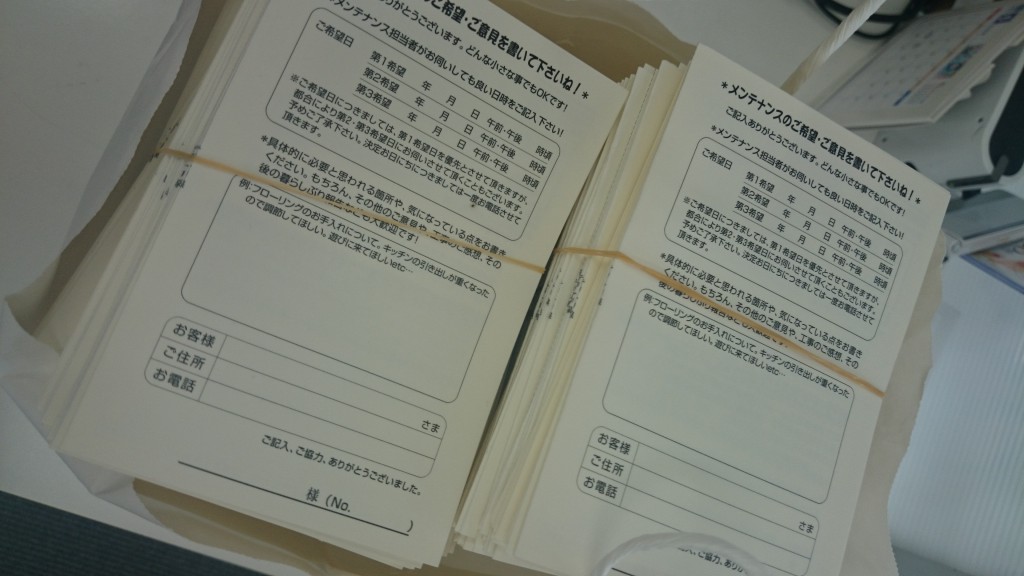 のご希望・ご意見を書いて下さいね！*
ありがとうございます。どんな小さな事でもOKです！
*メンテナンス担当者がお伺いしても良い日時をご記入下さい！
ご希望日 第1希望 年 月 日 午前・午後 時頃
第2希望 年 月 日 午前・午後 時頃
第3希望 年 月 日 午前・午後 時頃
※ご希望日につきましては、第1希望日を優先とさせて頂きますが、
都合により第2、第3希望日にお伺いさせて頂くこともございます。
予めご了承下さい。決定お日にちにつきましては一度お電話させて
頂きます。
*具体的に必要と思われる箇所や、気になっている点をお書き
ください。もちろん、その他のご意見や、工事のご感想、その
後の暮らしぶり
大歓迎です！
例.フローリングのお手入れについて、キッチンの引き出しが重くなった
ので調節してほしい、遊びに来てほしいetc…
お客様 さま
ご住所
お電話
ご記入、ご協力、ありがとうございました。
様（No. ）
*メンテナンスのご希望・ご意見を書いて下さいね！*
ご記入ありがとうございます。どんな小さな事でもOKです！
*メンテナンス担当者がお伺いしても良い日時をご記入下さい！
ご希望日 第1希望 年 月 日 午前・午後 時頃
第2希望 年 月 日 午前・午後 時頃
第3希望 年 月 日 午前・午後 時頃
※ご希望日につきましては、第1希望日を優先とさせて頂きますが、
都合により第2、第3希望日にお伺いさせて頂くこともございます。
予めご了承下さい。決定お日にちにつきましては一度お電話させて
頂きます。
*具体的に必要と思われる箇所や、気になっている点をお書き
ください。もちろん、その他のご意見や、工事のご感想、その
例.フローリングのお手入れについて、キッチンの引き出しが重くなった
ので調節してほしい、遊びに来てほしいetc…
お客様 さま
ご住所
お電話
ご協力、あり